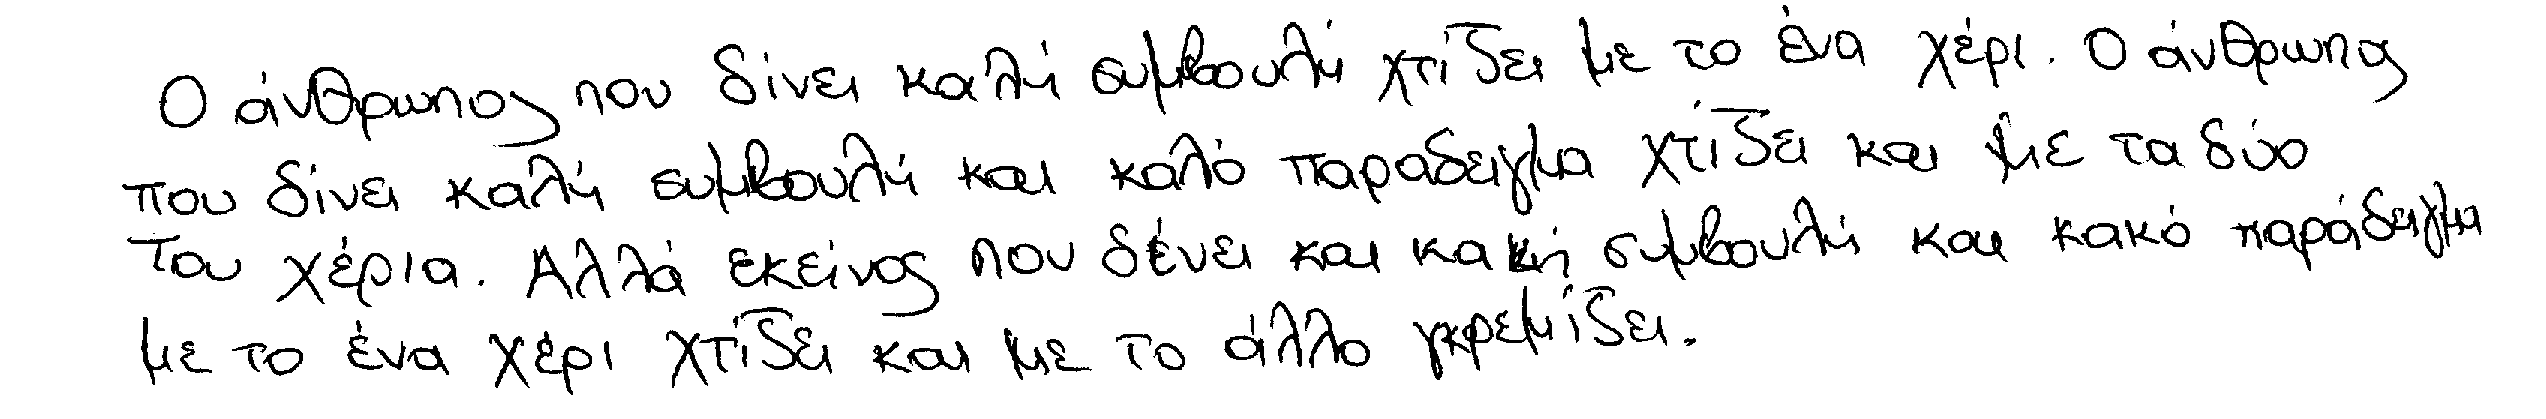 Ο άνθρωπος που δίνει καλή συμβουλή χτίζει με το ένα χέρι. Ο άνθρωπος
που δίνει καλή συμβουλή και καλό παραδειγμα χτίζει και με τα δύο
του χέρια. Αλλά εκείνος που δένει και κακή συμβουλή και κακό παράδειγμα
με το ένα χέρι χτίζει και με το άλλο γκρεμίζει.